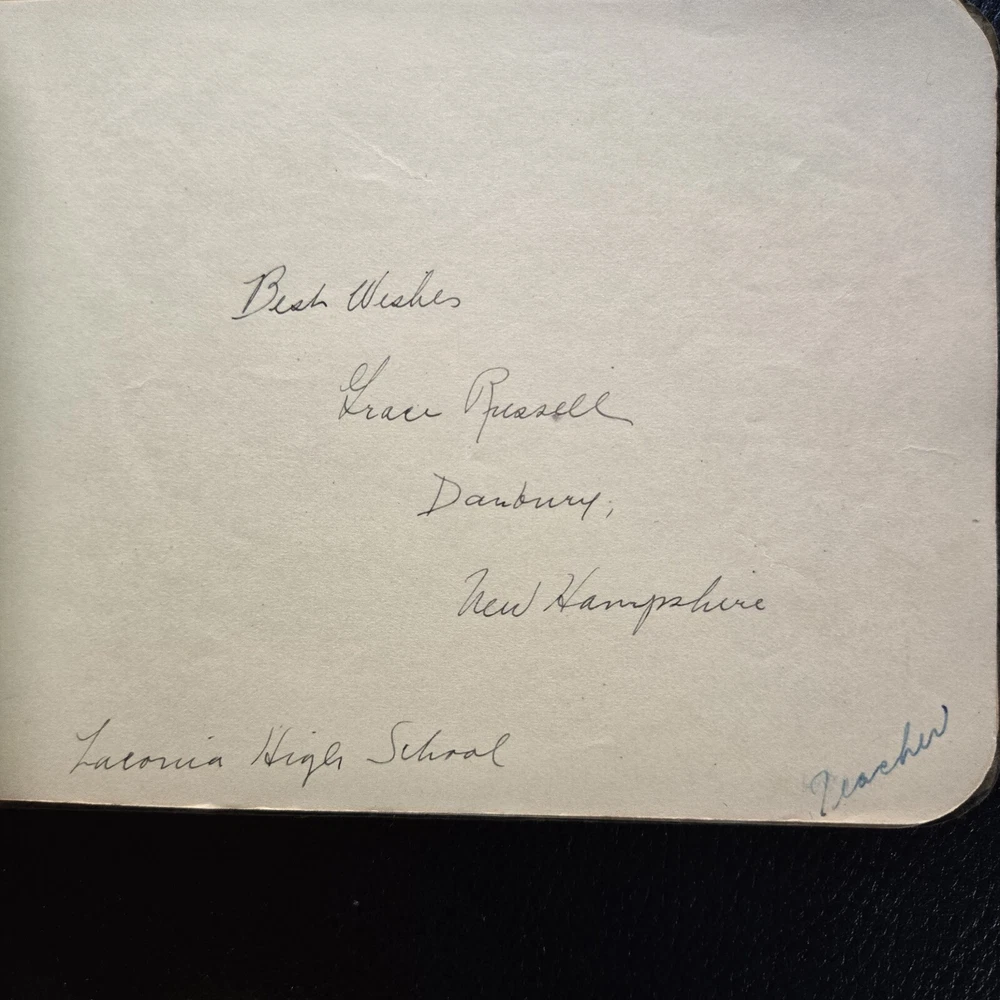 Best Wishes
Grace Russell
Danbury,
New Hampshire
Laconia High School
Teacher